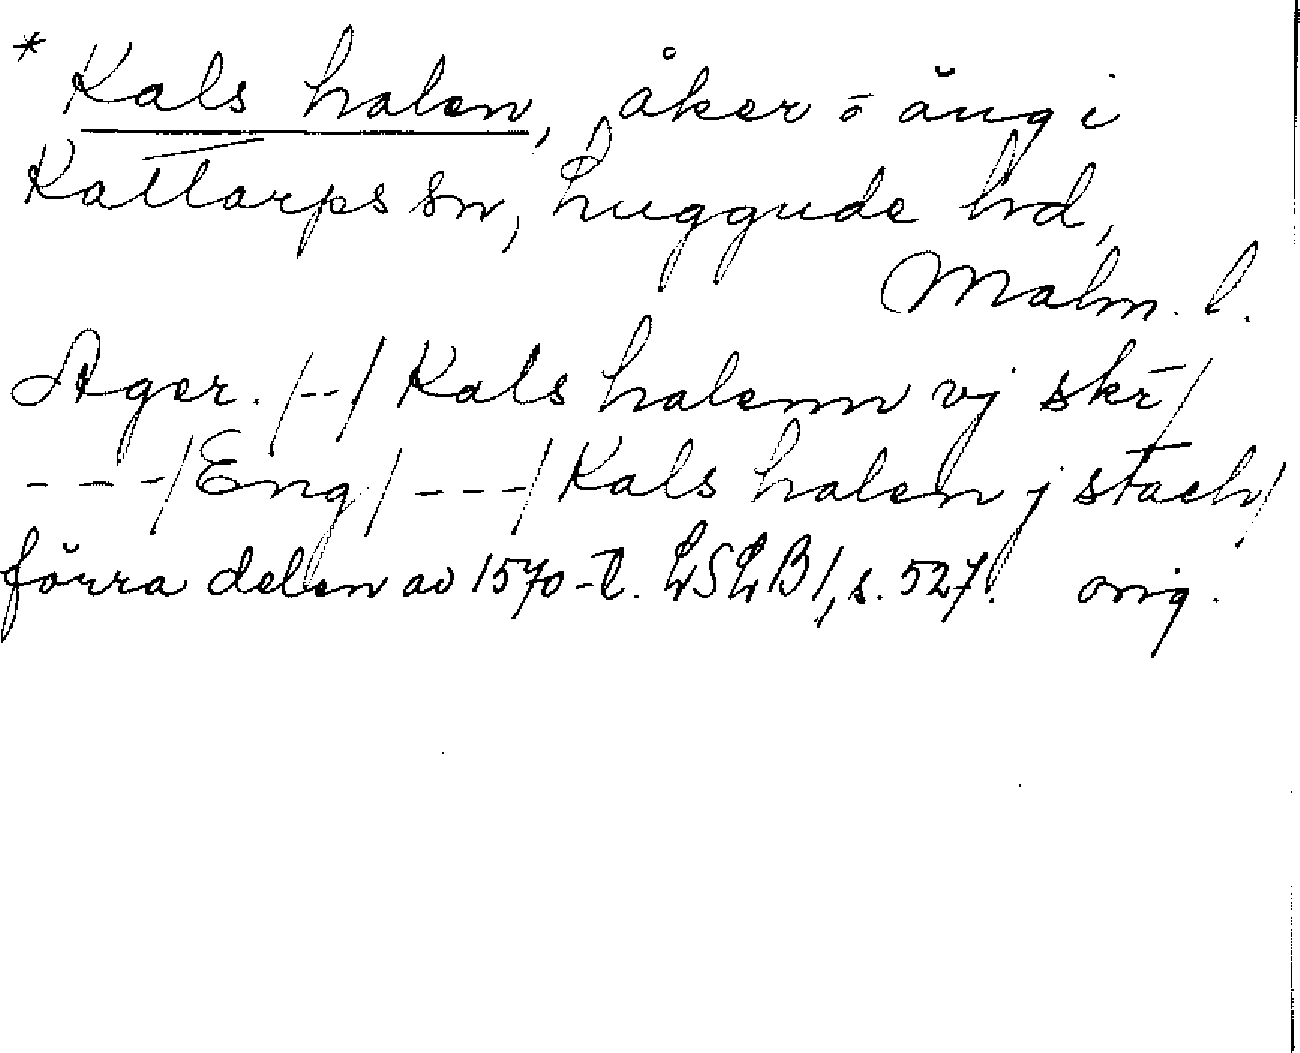 * Kals halen, åker o äng i
Kattarps sn, Luggude hd,
Malm. l.
Ager. /--/ Kals halenn vj skr̄/
---/Eng/---/Kals halen j stach/
förra delen av 1570-t. LSLB1, s. 527. orig.